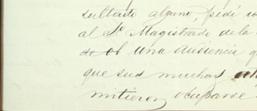 sultado alguno, pedí
al Sr Magistrado de la
una audiencia
que sus muchas
mitieron ocuparse